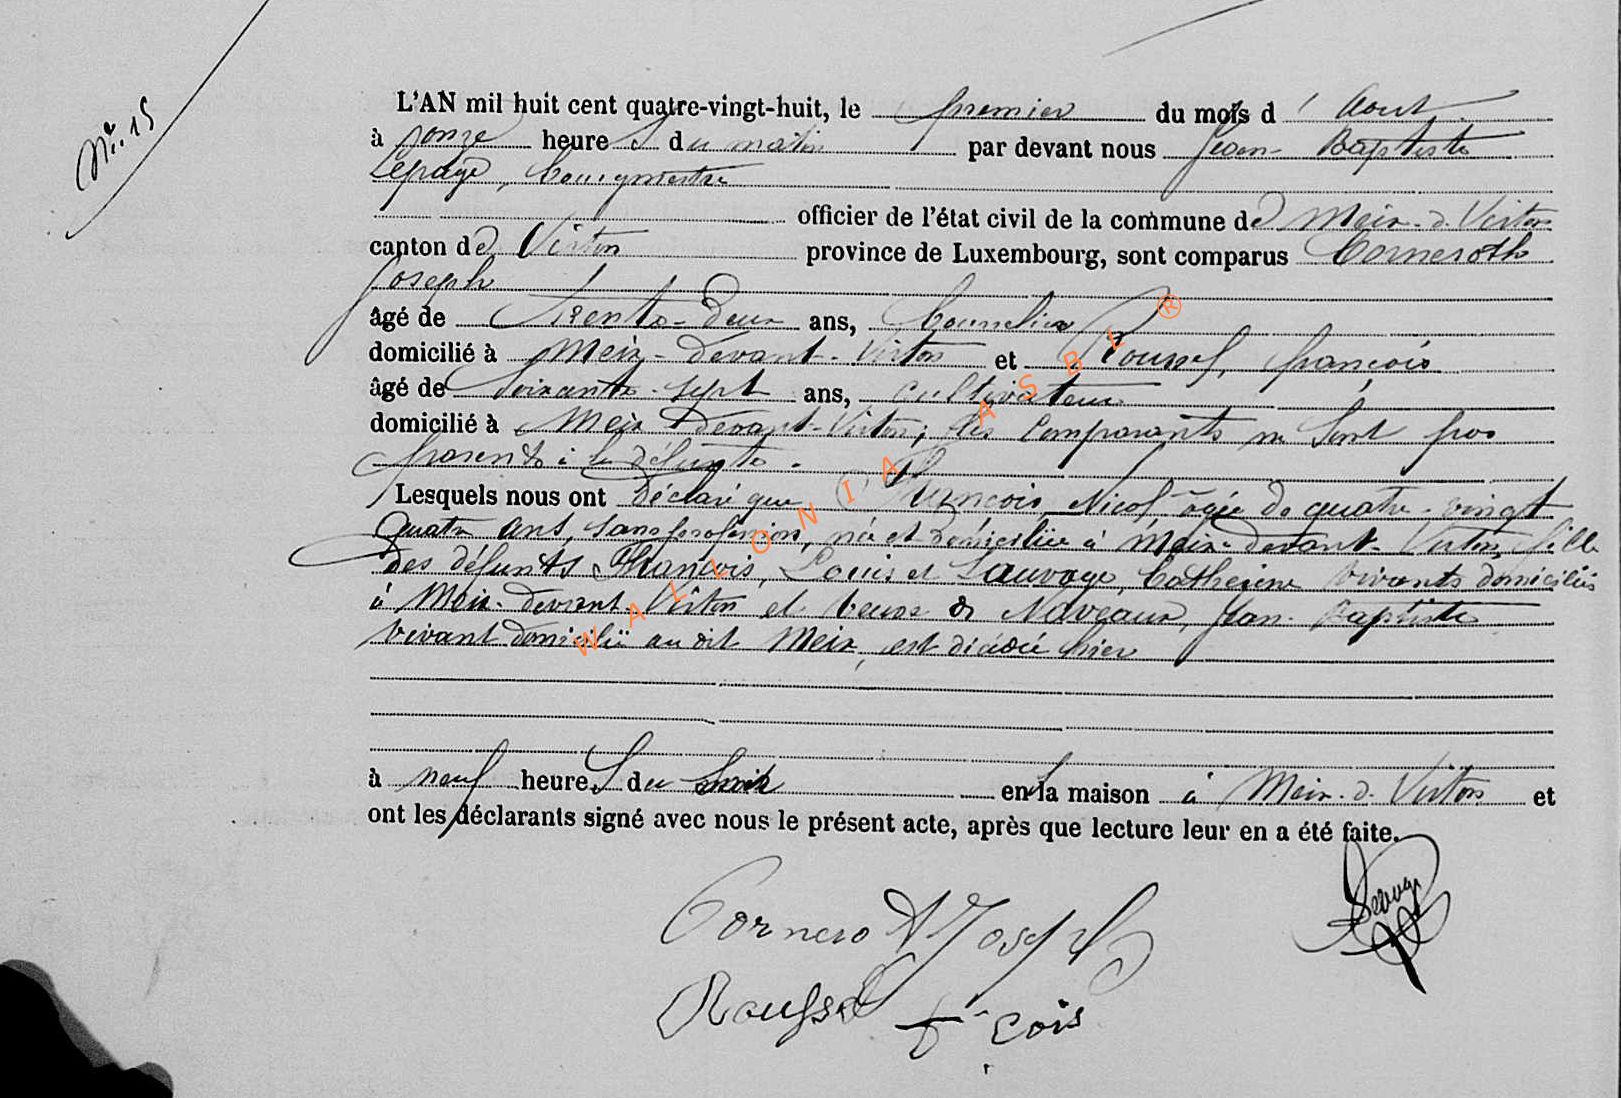 N° 15
L'AN mil huit cent quatre-vingt-huit, le premier du mois d'Aout
à onze heures du matin par devant nous Jean-Baptiste
Lepage, bourgmestre
officier de l'état civil de la commune de Meix-d-Virton
canton de Virton province de Luxembourg, sont comparus Corneroth
Joseph
âgé de Trente-deux ans,
domicilié à Meix-devant-Virton et Roussel, françois
âgé de Soixante-sept ans, cultivateur
domicilié à Meix devant-Virton; les Comparants ne sont pas
parents à la défunte.
Lesquels nous ont déclaré que François, Nicol âgée de quatre-vingt
quatre ans, sans profession, née et domiciliée à Meix-devant-Virton, fille
des défunts François, Louis et Sauvage, Catherine vivants domiciliés
à Meix-devant-Virton et veuve de Naveaux, Jean-Baptiste
vivant domicilié au dit Meix, est décédée hier
à neuf heures du soir en la maison à Meix-d-Virton et
ont les déclarants signé avec nous le présent acte, après que lecture leur en a été faite.
Lepage
Cornerot Joseph
Roussel fcois
WALLONIA ASBL ®